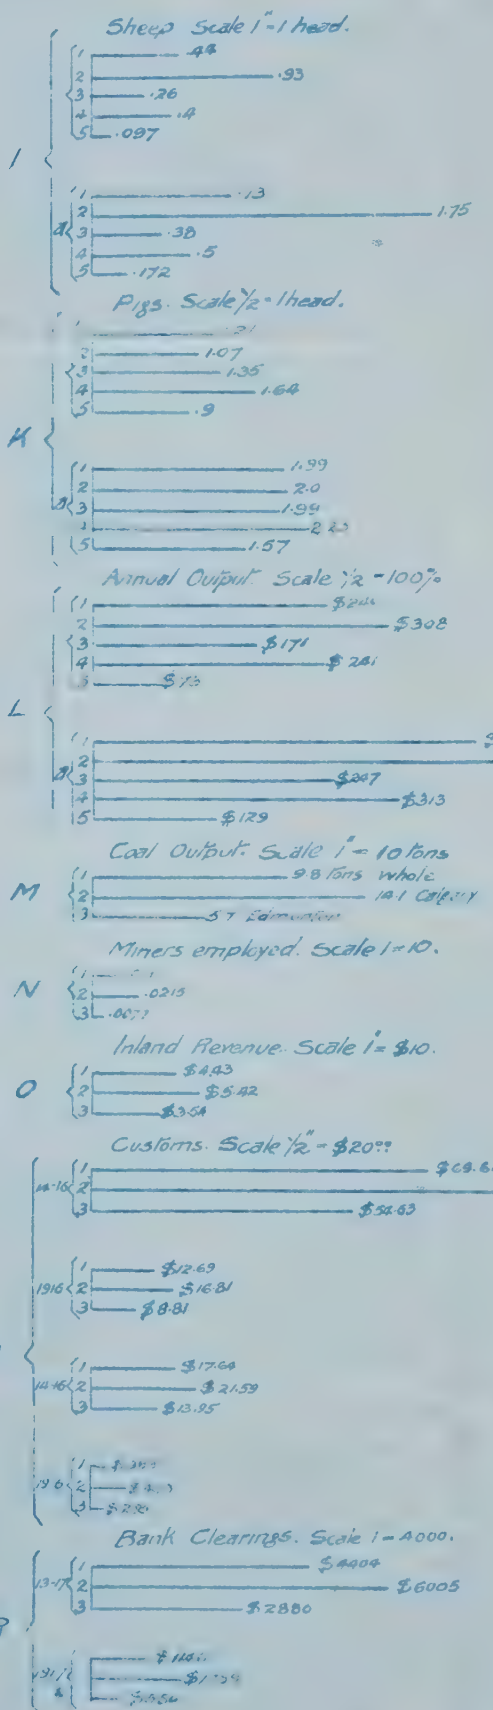 Sheep Scale 1" = 1 head.
1 .44
2 .93
3 .26
4 .4
5 .097
I
1 .13
2 1.75
a 3 .38
4 .5
5 .172
Pigs. Scale 1/2" = 1 head.
1
2 1.07
3 1.35
4 1.64
5 .9
K
1 1.99
2 2.0
a 3 1.99
4
5 1.57
Annual Output. Scale 1/2" = 100%
1
2 $308
3 $171
4 $241
5 $73
L
1 $
2
a 3 $247
4 $313
5 $129
Coal Output. Scale 1" = 10 Tons
1 9.8 Tons Whole
M 2 14.1 Calgary
3 5.7 Edmonton
Miners employed. Scale 1 = 10.
1
N 2 .0215
3 .0077
Inland Revenue. Scale 1" = $10.
1 $4.43
O 2 $5.42
3 $3.54
Customs. Scale 1/2" = $20.00
1 $69.6
14-16 2
3 $54.63
1 $12.69
1916 2 $16.81
3 $8.81
1 $17.64
14-16 2 $21.59
3 $13.95
1
1916 2
3
Bank Clearings. Scale 1 = 4000.
1 $4404
13-17 2 $6005
3 $2880
1917